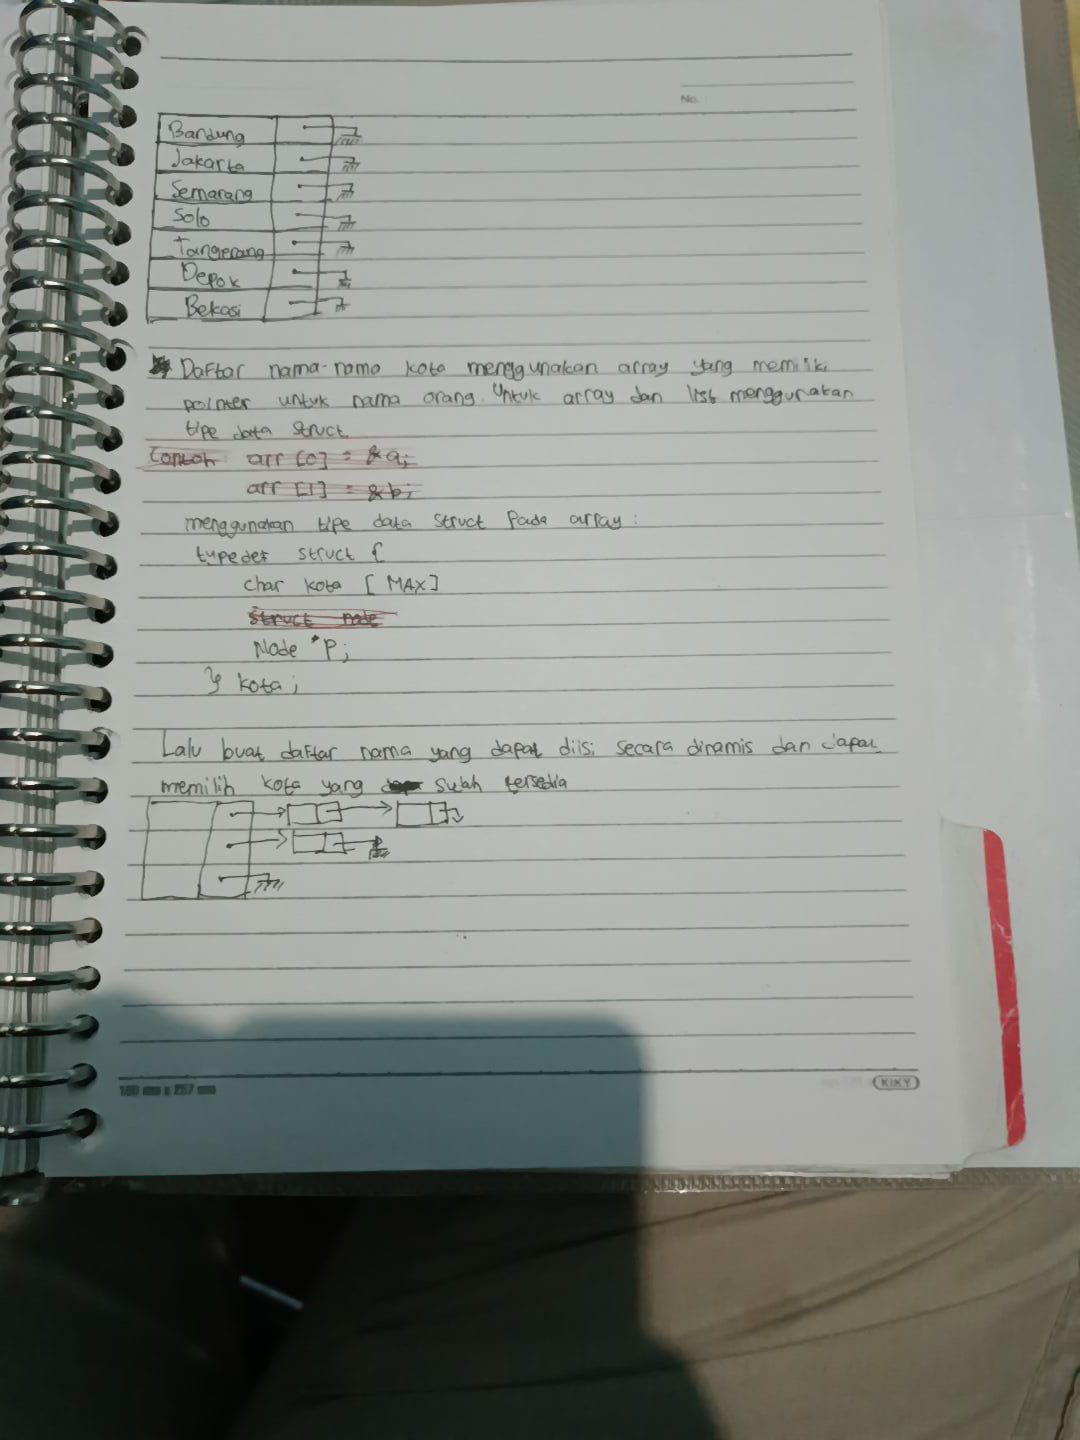 No.
Bandung
Jakarta
Semarang
Solo
Tangerang
Depok
Bekasi
Daftar nama-nama kota menggunakan array yang memiliki
pointer untuk nama orang. Untuk array dan list menggunakan
tipe data struct
Contoh arr [0] = &a;
arr [1] = &b;
menggunakan tipe data struct pada array:
typedef struct {
char kota [MAX]
struct node
Node *P;
} kota;
Lalu buat daftar nama yang dapat diisi secara dinamis dan dapat
memilih kota yang sudah tersedia
180 mm x 257 mm
KIKY